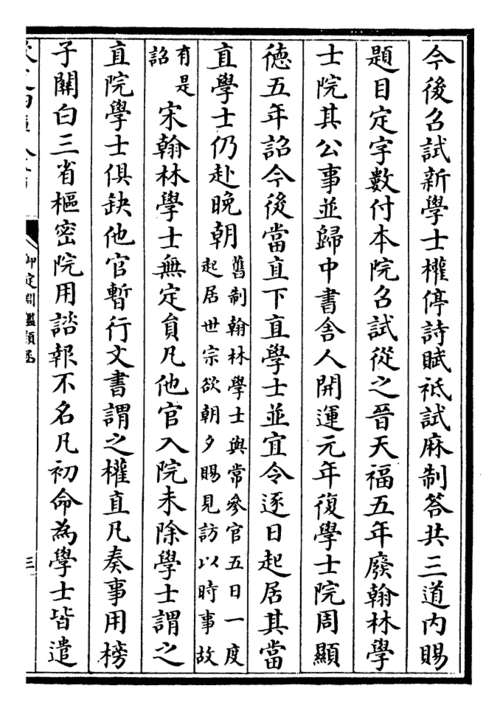 今後召試新學士權停詩賦祗試麻制答共三道内賜
題目定字數付本院召試從之晉天福五年廢翰林學
士院其公事並歸中書舎人開運元年復學士院周顯
徳五年詔今後當直下直學士並宜令逐日起居其當
直學士仍赴晚朝舊制翰林學士與常參官五日一度起居世宗欲朝夕賜見訪以時事故
有是詔宋翰林學士無定員凡他官入院未除學士謂之
直院學士俱缺他官暫行文書謂之權直凡奏事用榜
子關白三省樞密院用諮報不名凡初命為學士皆遣
御定淵鑑類函
三